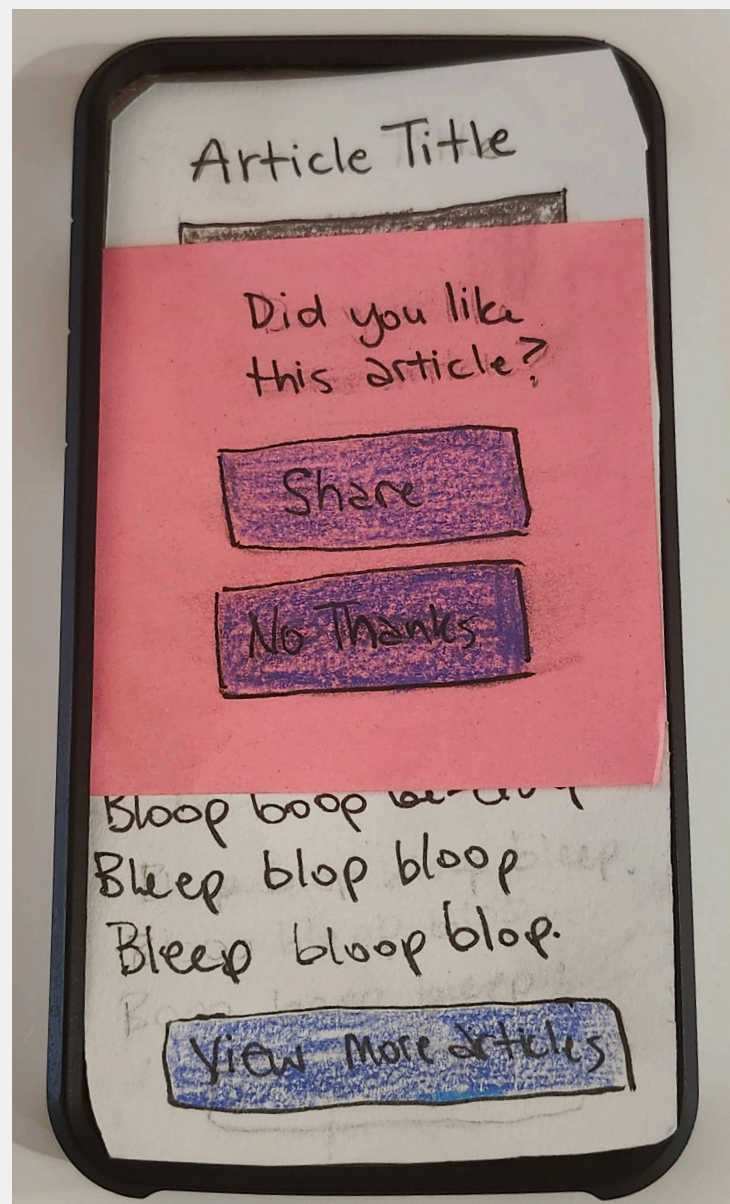 Article Title
Did you like
this article?
Share
No Thanks
Bloop boop
Bleep blop bloop
Bleep bloop blop.
View more articles